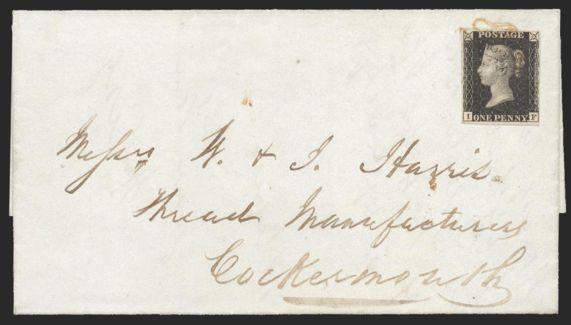 POSTAGE
I F
ONE PENNY
Messrs W. & J. Harris
Thread Manufacturers
Cockermouth